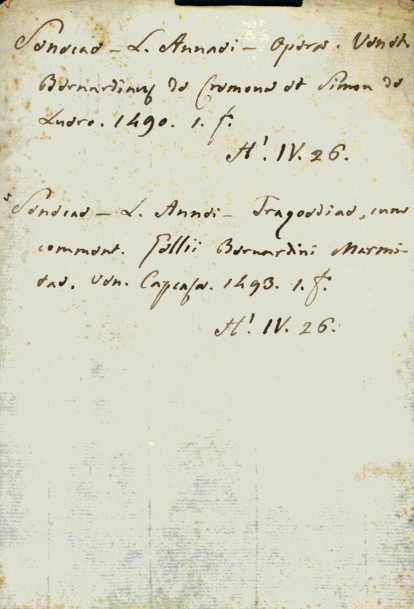 Senecae – L. Annaei – Opera. Venet.
Bernardinus de Cremona et Simon de
Luero. 1490. 1. f.
H! IV. 26.
Senecae – L. Annei – Tragoediae, cum
comment. Gellii Bernardini Marmi-
tae. Ven. Capcasa. 1493. 1. f.
H! IV. 26.